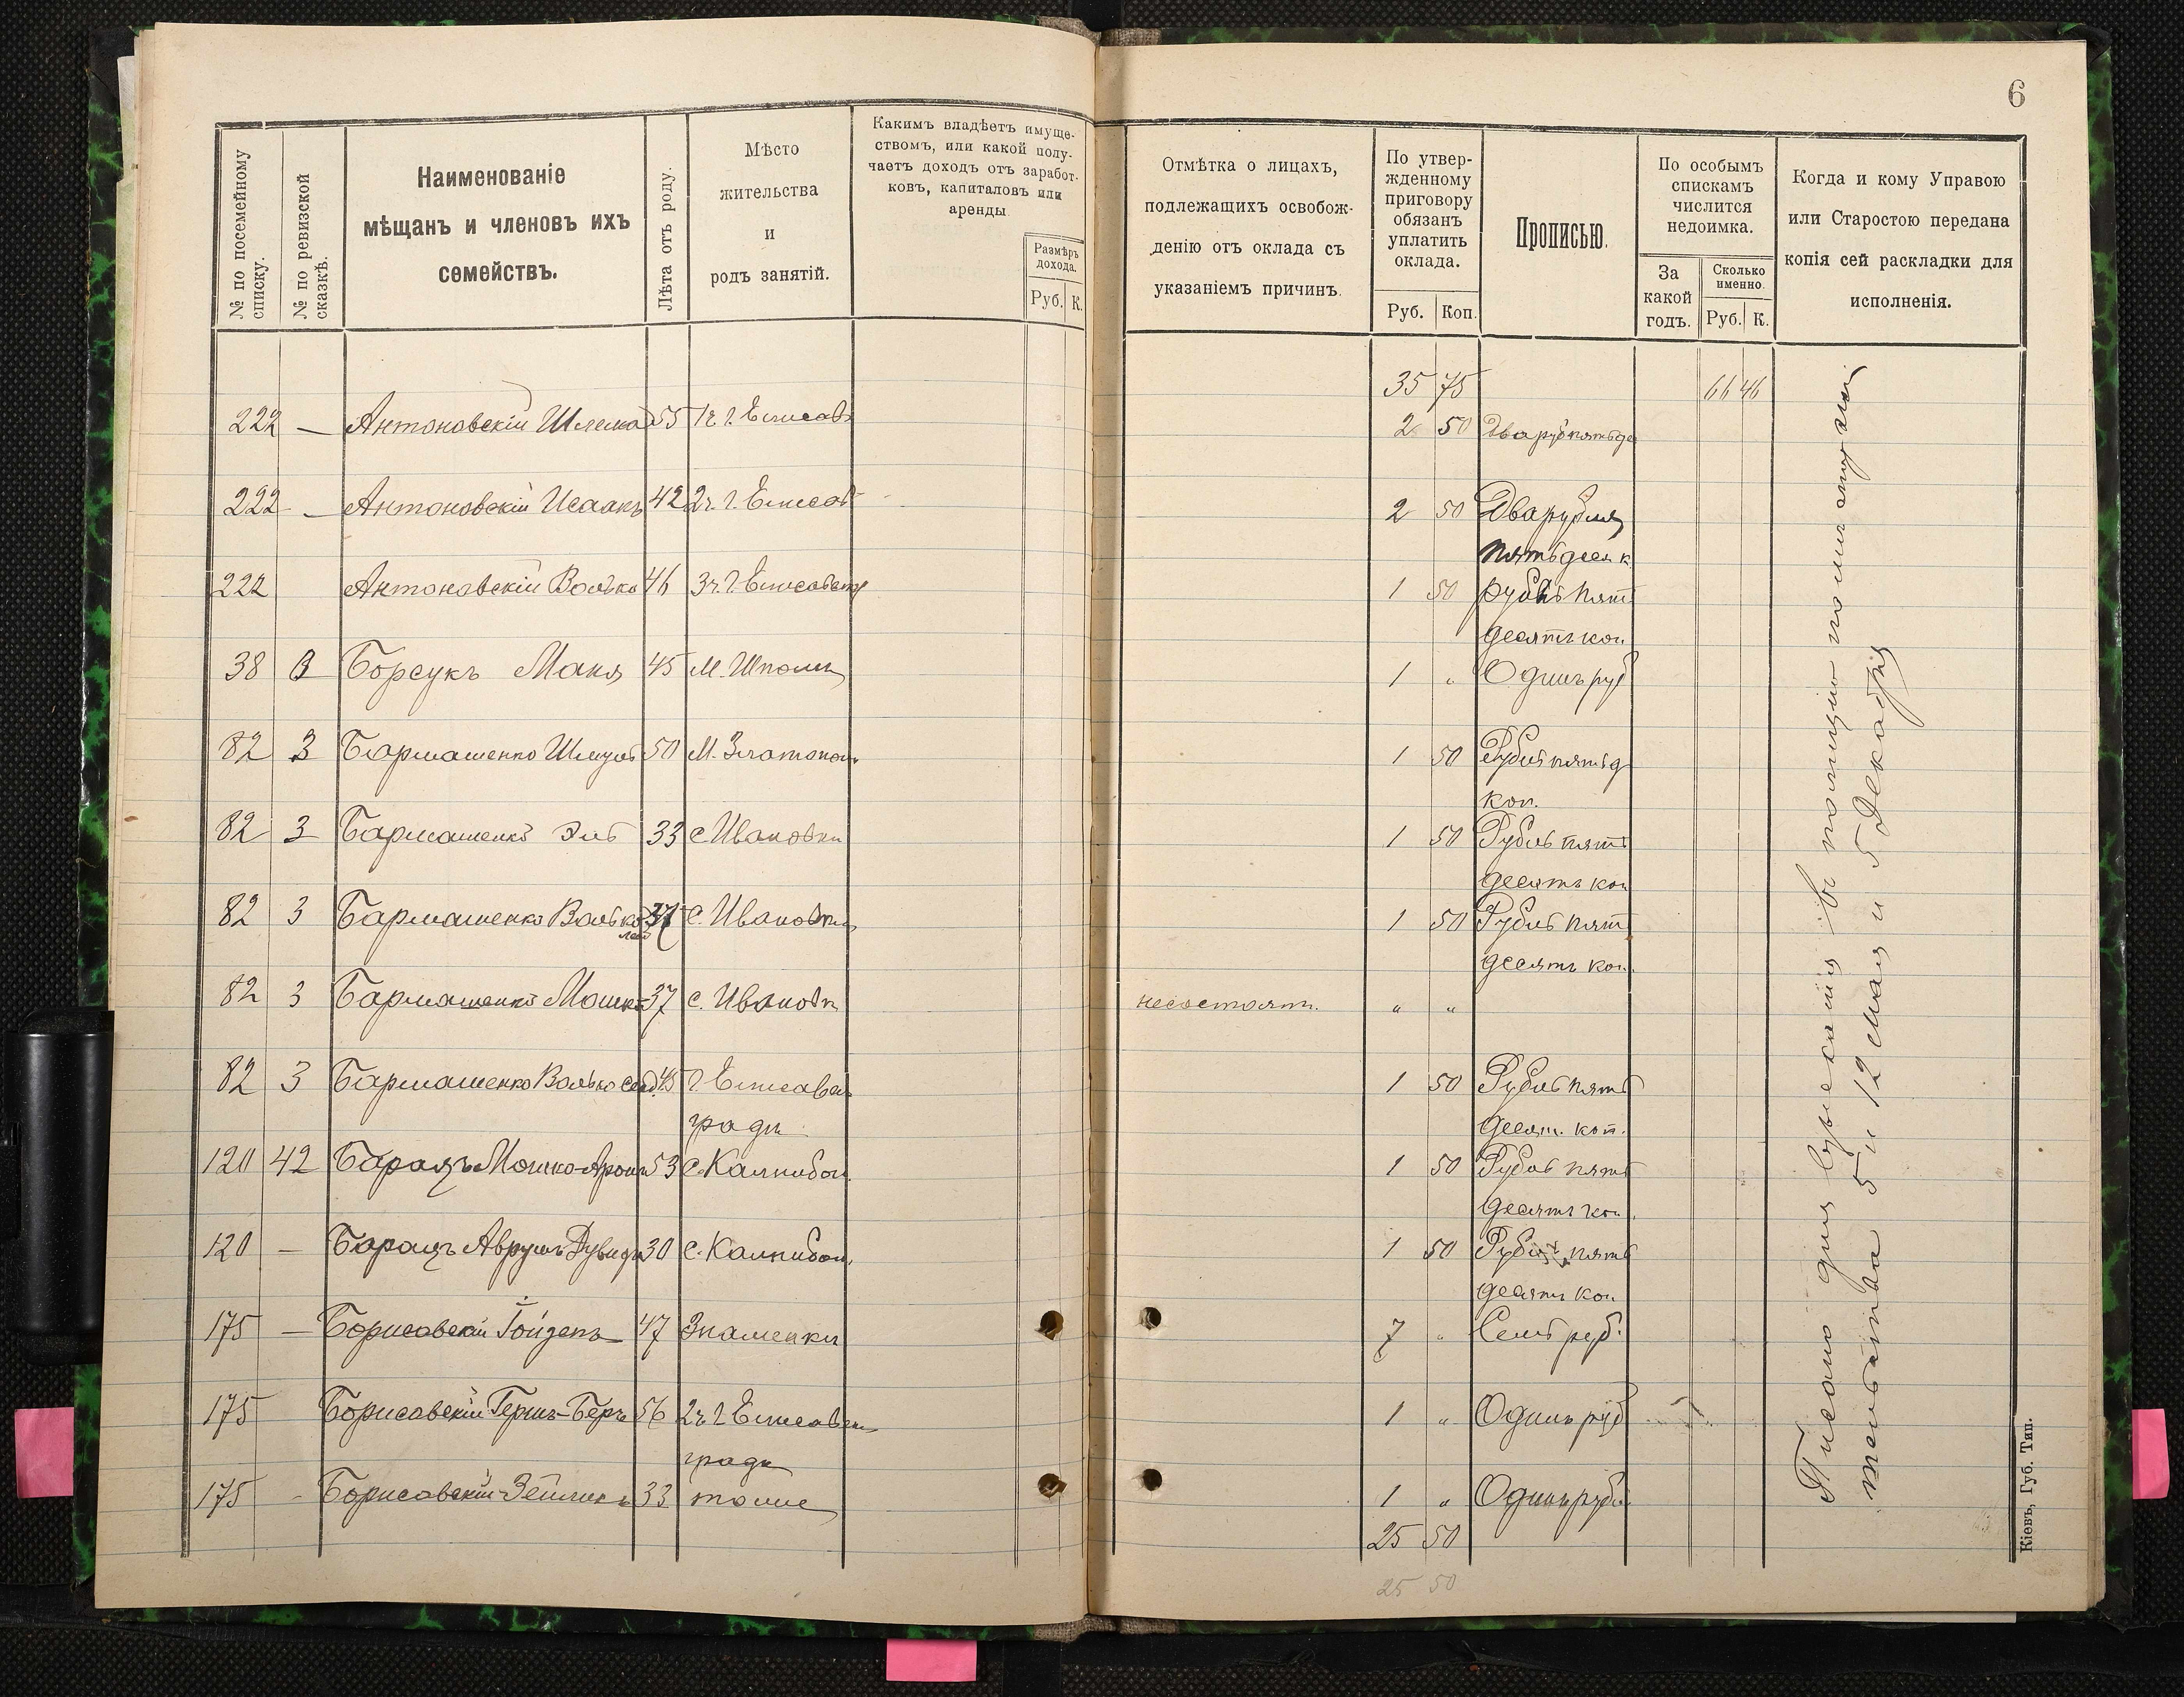 6
№ по посемейному списку.
№ по ревизской сказкѣ.
Наименованіе
мѣщанъ и членовъ ихъ
семействъ.
Лѣта отъ роду.
Мѣсто
жительства
и
родъ занятій.
Какимъ владѣетъ имуще-
ствомъ, или какой полу-
чаетъ доходъ отъ заработ-
ковъ, капиталовъ или
аренды.
Размѣръ
дохода.
Руб. К.
Отмѣтка о лицахъ,
подлежащихъ освобож-
денію отъ оклада съ
указаніемъ причинъ.
По утвер-
жденному
приговору
обязанъ
уплатить
оклада.
Руб. Коп.
Прописью.
По особымъ
спискамъ
числится
недоимка.
За
какой
годъ.
Сколько
именно.
Руб. К.
Когда и кому Управою
или Старостою передана
копія сей раскладки для
исполненія.
35 75 66 46
222 — Антоновскій Шлема 55 1ч. г. Елисав 2 50 Два руб пятьде
222 — Антоновскій Исаакъ 42 2ч. г. Елисав 2 50 Два рубля
пятьдеся к
222 Антоновскій Волько 46 3ч. г. Елисавет 1 50 рубль пят
десятъ коп
38 Борсукъ Маня 45 М. Шпола 1 „ Одинъ руб
82 3 Бармашенко Шмуль 50 М. Златопол 1 50 Рубль пятьд
коп.
82 3 Бармашенко Эль 33 с Ивановки 1 50 Рубль пять
десятъ коп
82 3 Бармашенко Волько 37 с. Ивановки 1 50 Рубль пят
десятъ коп.
82 3 Бармашенко Мошко 37 с. Ивановк несостоят. „ „
82 3 Бармашенко Волько 45 г. Елисавет 1 50 Рубль пять
градъ десят. коп.
120 42 Барацъ Мошко-Аронъ 53 с. Калнибол. 1 50 Рубль пять
десятъ коп.
120 — Барацъ Аврумъ Дувидъ 30 с. Калнибол. 1 50 Рубль пять
десятъ коп
175 — Борисовскій 47 Знаменки 7 „ Семь руб.
175 Борисовскій Гершъ-Беръ 56 2ч. г Елисавет 1 „ Одинъ руб
градъ
175 - Борисовскій 33 тоже 1 „ Одинъ руб
25 50
25 50
Писано для взысканія въ полицію по
5 и 12 Мая и 5 Декабря
Кіевъ, Губ. Тип.